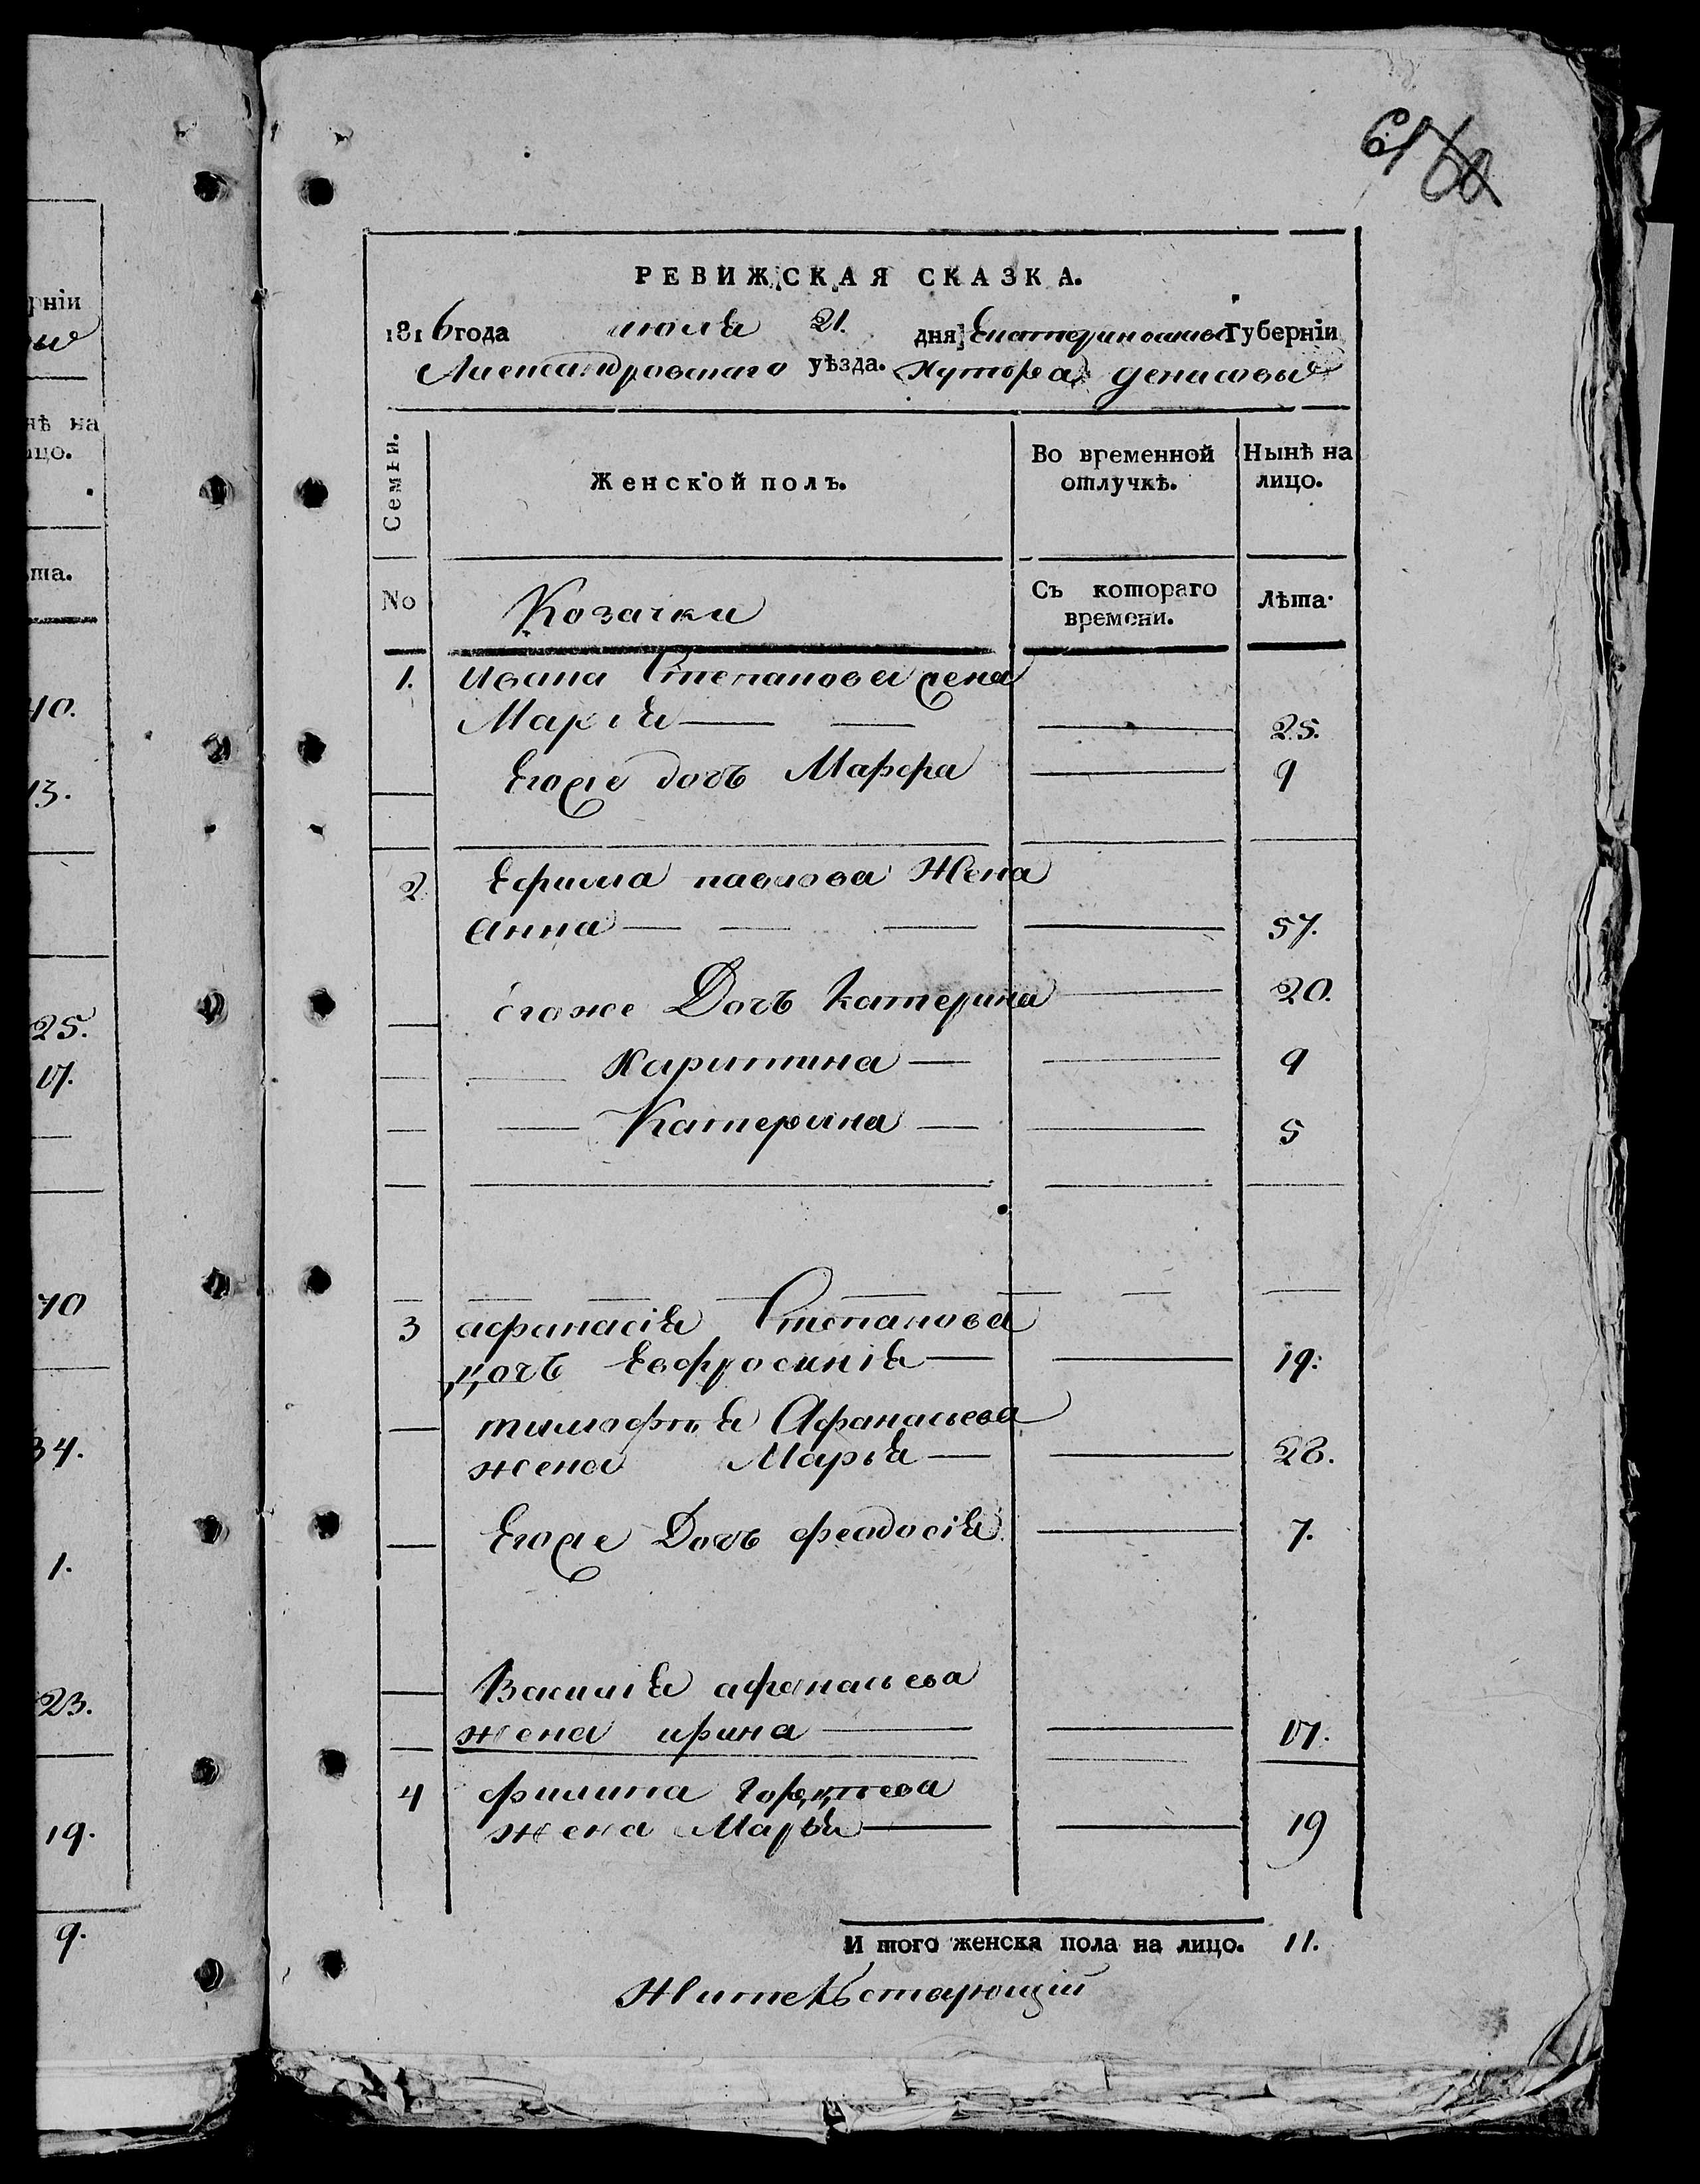 рніи
нѣ на
ицо.
ѣта.
10.
13.
25.
17.
70
34.
1.
23.
19.
9.
61 60
РЕВИЖСКАЯ СКАЗКА.
1816 года июля 21. дня Екатериносла Губерніи
Александровскаго уѣзда. Хутора денисовы
Семьи. Женской полъ. Во временной отлучкѣ. Нынѣ на лицо.
No Козачки Съ котораго времени. Лѣта.
1. Ивана Степанова жена
Марія 25.
Егоже дочь Марфа 9
2 Ефима павлова Жена
Анна 57.
егоже Дочь Катерина 20.
Харитина 9
Катерина 5
3 афанасія Степанова
дочь Евфросинія 19.
тимофѣя Афанасьева
жена Марья 28.
Егоже Дочь феодосія 7.
Василія афанасьева
жена ирина 17.
4 филипа Гордѣева
жена Марья 19
И того женска пола на лицо. 11.
Жительстующій